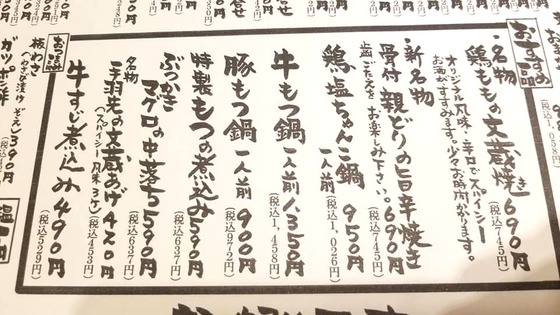 おすすめ品
・名物
鶏ももの文蔵焼き 690円
(税込745円)
オリジナル風味・辛口でスパイシー
お酒がすすみます。少々お時間かかります。
・新名物
骨付親どりの旨辛焼き
歯ごたえをお楽しみ下さい。690円
(税込745円)
鶏塩ちゃんこ鍋
一人前 950円
(税込1,026円)
牛もつ鍋 一人前 1,350円
(税込1,458円)
豚もつ鍋 一人前 900円
(税込972円)
特製もつの煮込み 590円
(税込637円)
ぶつかき
マグロの中落ち 590円
(税込637円)
名物
手羽先の文蔵あげ 420円
(スパイシー風味 3ケ)
(税込453円)
牛すじ煮込み 490円
(税込529円)
おつまみ品
板わさ
390円
ガツポン酢
塩